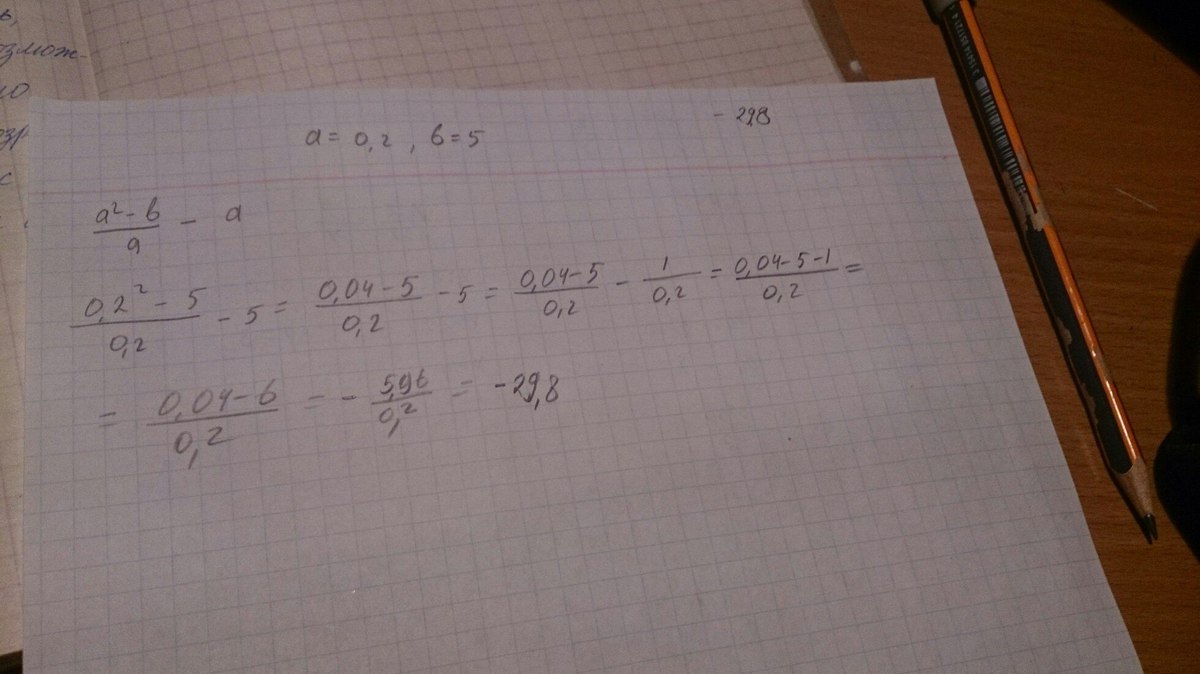 ь,
озмож-
ю
озр
с
- 29,8
a = 0,2 , b = 5
(a² - b)/a - a
(0,2² - 5)/0,2 - 5 = (0,04 - 5)/0,2 - 5 = (0,04 - 5)/0,2 - 1/0,2 = (0,04 - 5 - 1)/0,2 =
= (0,04 - 6)/0,2 = - 5,96/0,2 = - 29,8